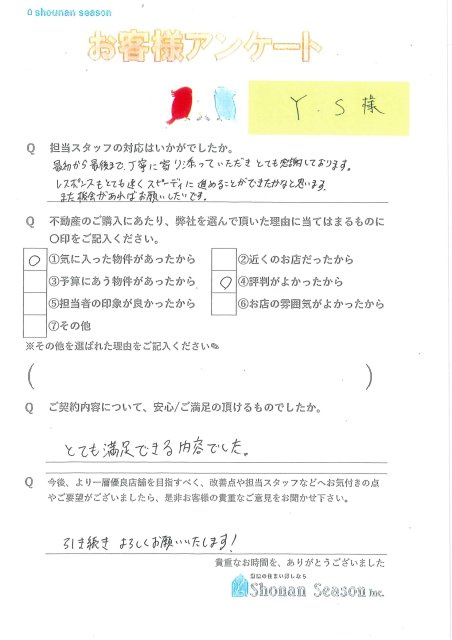 shounan season
お客様アンケート
Y.S 様
Q 担当スタッフの対応はいかがでしたか。
最初から最後まで、丁寧に寄り添っていただきとても感謝しております。
レスポンスもとても速くスピーディに進めることができたかなと思います。
また機会があればお願いしたいです。
Q 不動産のご購入にあたり、弊社を選んで頂いた理由に当てはまるものに
〇印をご記入ください。
○ ①気に入った物件があったから ②近くのお店だったから
③予算にあう物件があったから ○ ④評判がよかったから
⑤担当者の印象が良かったから ⑥お店の雰囲気がよかったから
⑦その他
※その他を選ばれた理由をご記入ください✎
( )
Q ご契約内容について、安心/ご満足の頂けるものでしたか。
とても満足できる内容でした。
Q 今後、より一層優良店舗を目指すべく、改善点や担当スタッフなどへお気付きの点
やご要望がございましたら、是非お客様の貴重なご意見をお聞かせ下さい。
引き続き よろしくお願いいたします!
貴重なお時間を、ありがとうございました
湘南の住まい探しなら
Shonan Season Inc.